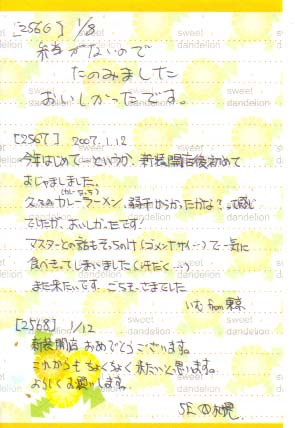 [2566] 1/8
弁当がないので
たのみました
おいしかったです。
[2567] 2007.1.12
今年はじめて…というか、新装開店後初めて
おじゃましました。
久々のカレーラーメン、若干からかったかな?って感じ
でしたが、おいしかったです!
マスターとの話もそっちのけ(ゴメンナサイ…)で一気に
食べきってしまいました(汗だく…)
また来たいです。ごちそーさまでした
いむ from 東京
[2568] 1/12
新装開店おめでとうございます。
これからもちょくちょく来たいと思います。
よろしくお願いします。
sweet
dandelion